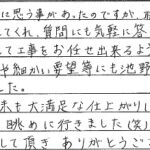 に思う事があったのですが、
てくれ、質問にも気軽に答
して工事をお任せ出来るよう
や細かい要望等にも池野
した。
末も大満足な仕上がりし
眺めに行きました(笑)
して頂き ありがとうござ